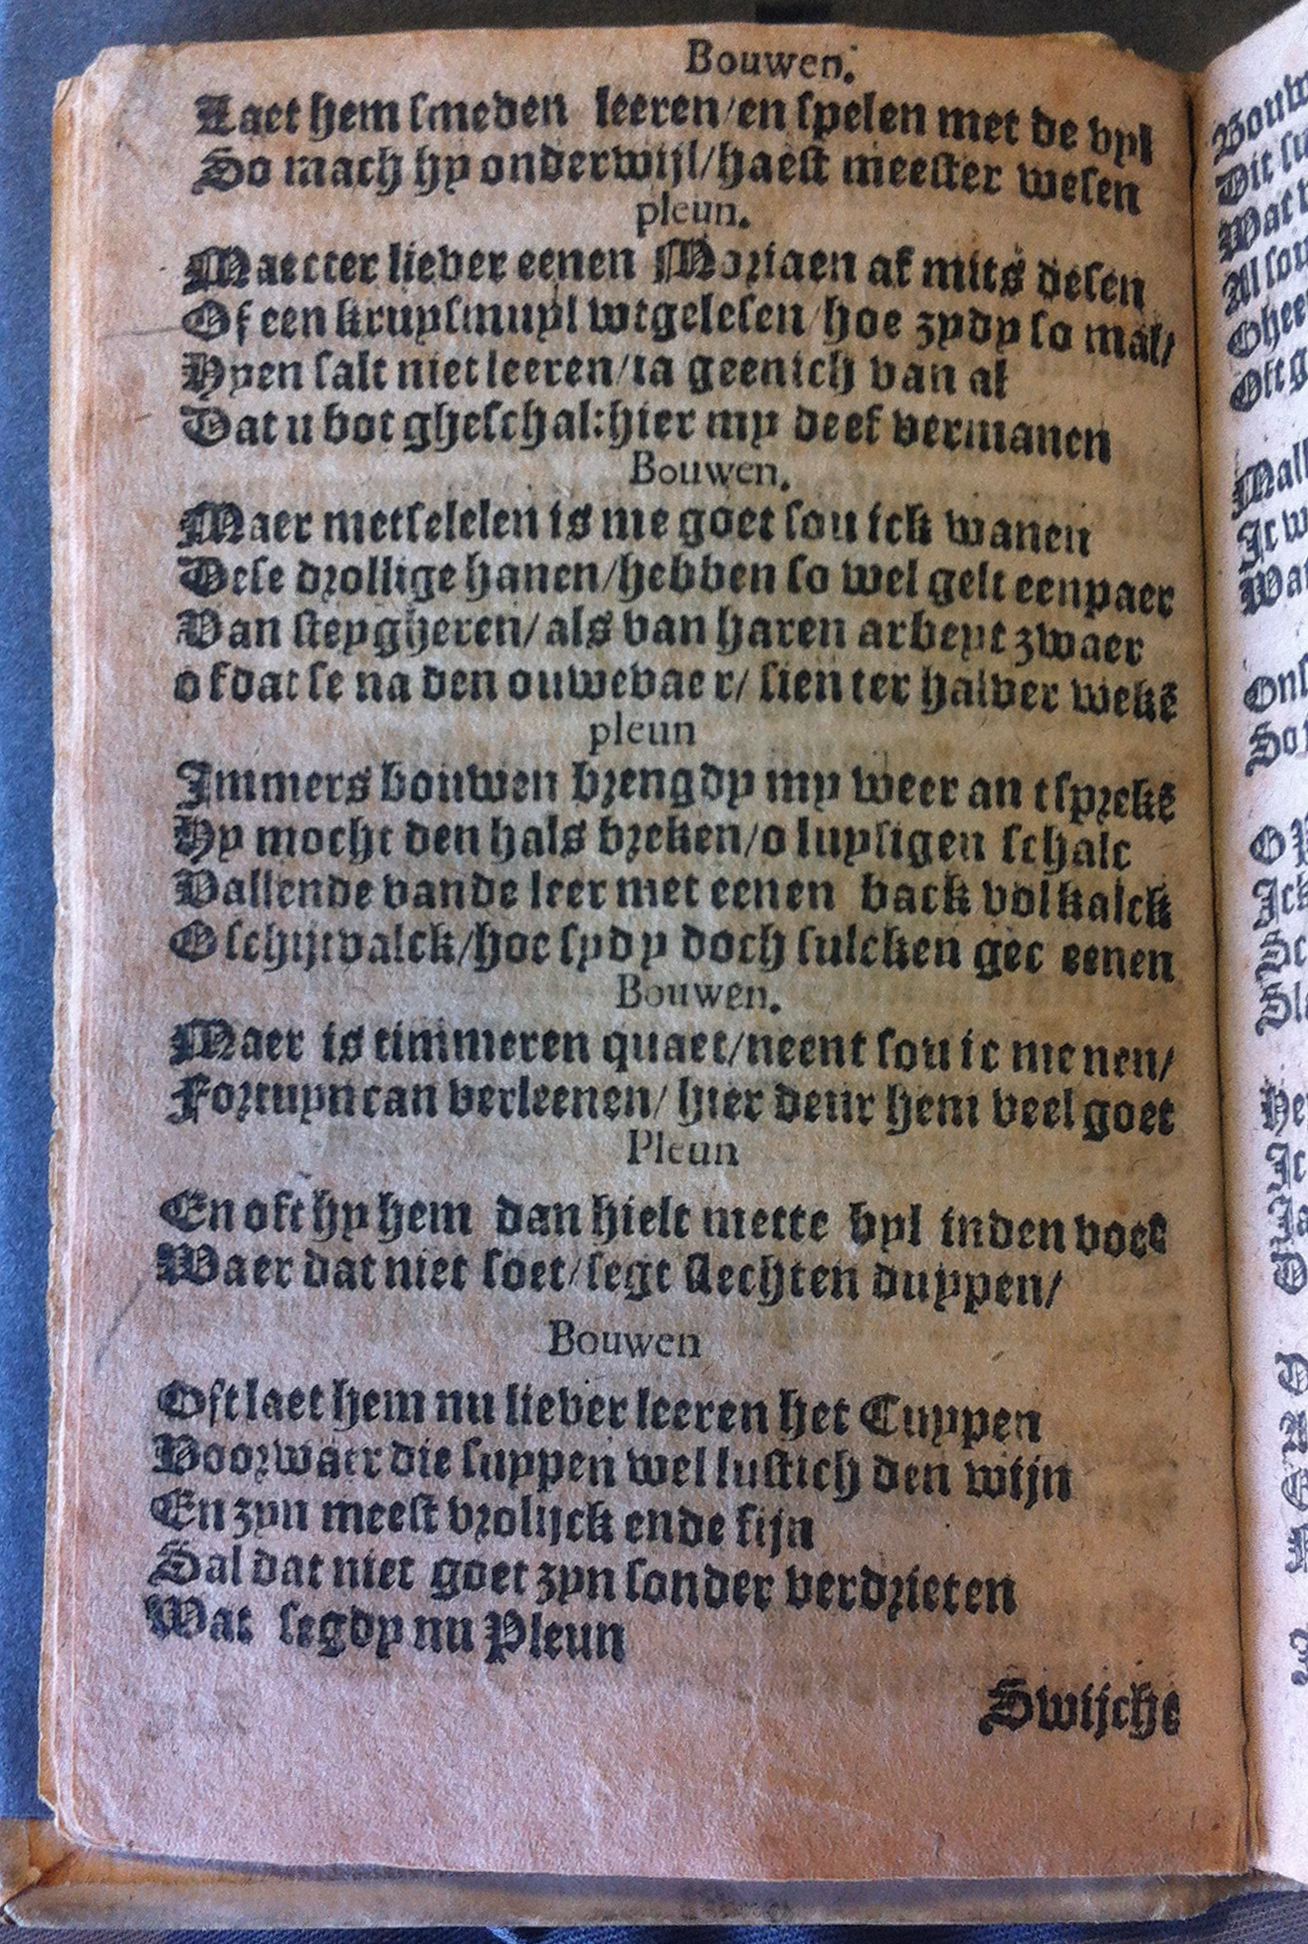 Bouwen.
Laet hem smeden leeren/en spelen met de vyl
So mach hy onderwijl/haest meester wesen
pleun.
Maectter liever eenen Moriaen af mits desen
Of een kruysmuyl wtgelesen/hoe zydy so mal/
Hyen salt niet leeren/ta geenich van al
Dat u bot gheschal:hier my deef vermanen
Bouwen.
Maer metselelen is me goet sou ick wanen
Dese drollige hanen/hebben so wel gelt eenpaer
Van steygheren/als van haren arbeyt zwaer
ofdat se na den ouwevaer/ sien ter halver wekē
pleun
Immers bouwen brengdy my weer an tsprekē
Hy mocht den hals breken/o luysigen schalc
Vallende vande leer met eenen back vol kalck
O schijtvalck/hoe sydy doch sulcken gec eenen
Bouwen.
Maer is timmeren quaet/neent sou ic menen/
Fortuyn can verleenen/ hier deur hem veel goet
Pleun
En oft hy hem dan hielt mette byl inden voet
Waer dat niet soet/segt slechten duppen/
Bouwen
Oft laet hem nu liever leeren het Cuypen
Voorwaer die suppen wel lustich den wijn
En zyn meest vrolijck ende fijn
Sal dat niet goet zyn sonder verdrieten
Wat segdy nu Pleun
Swijche